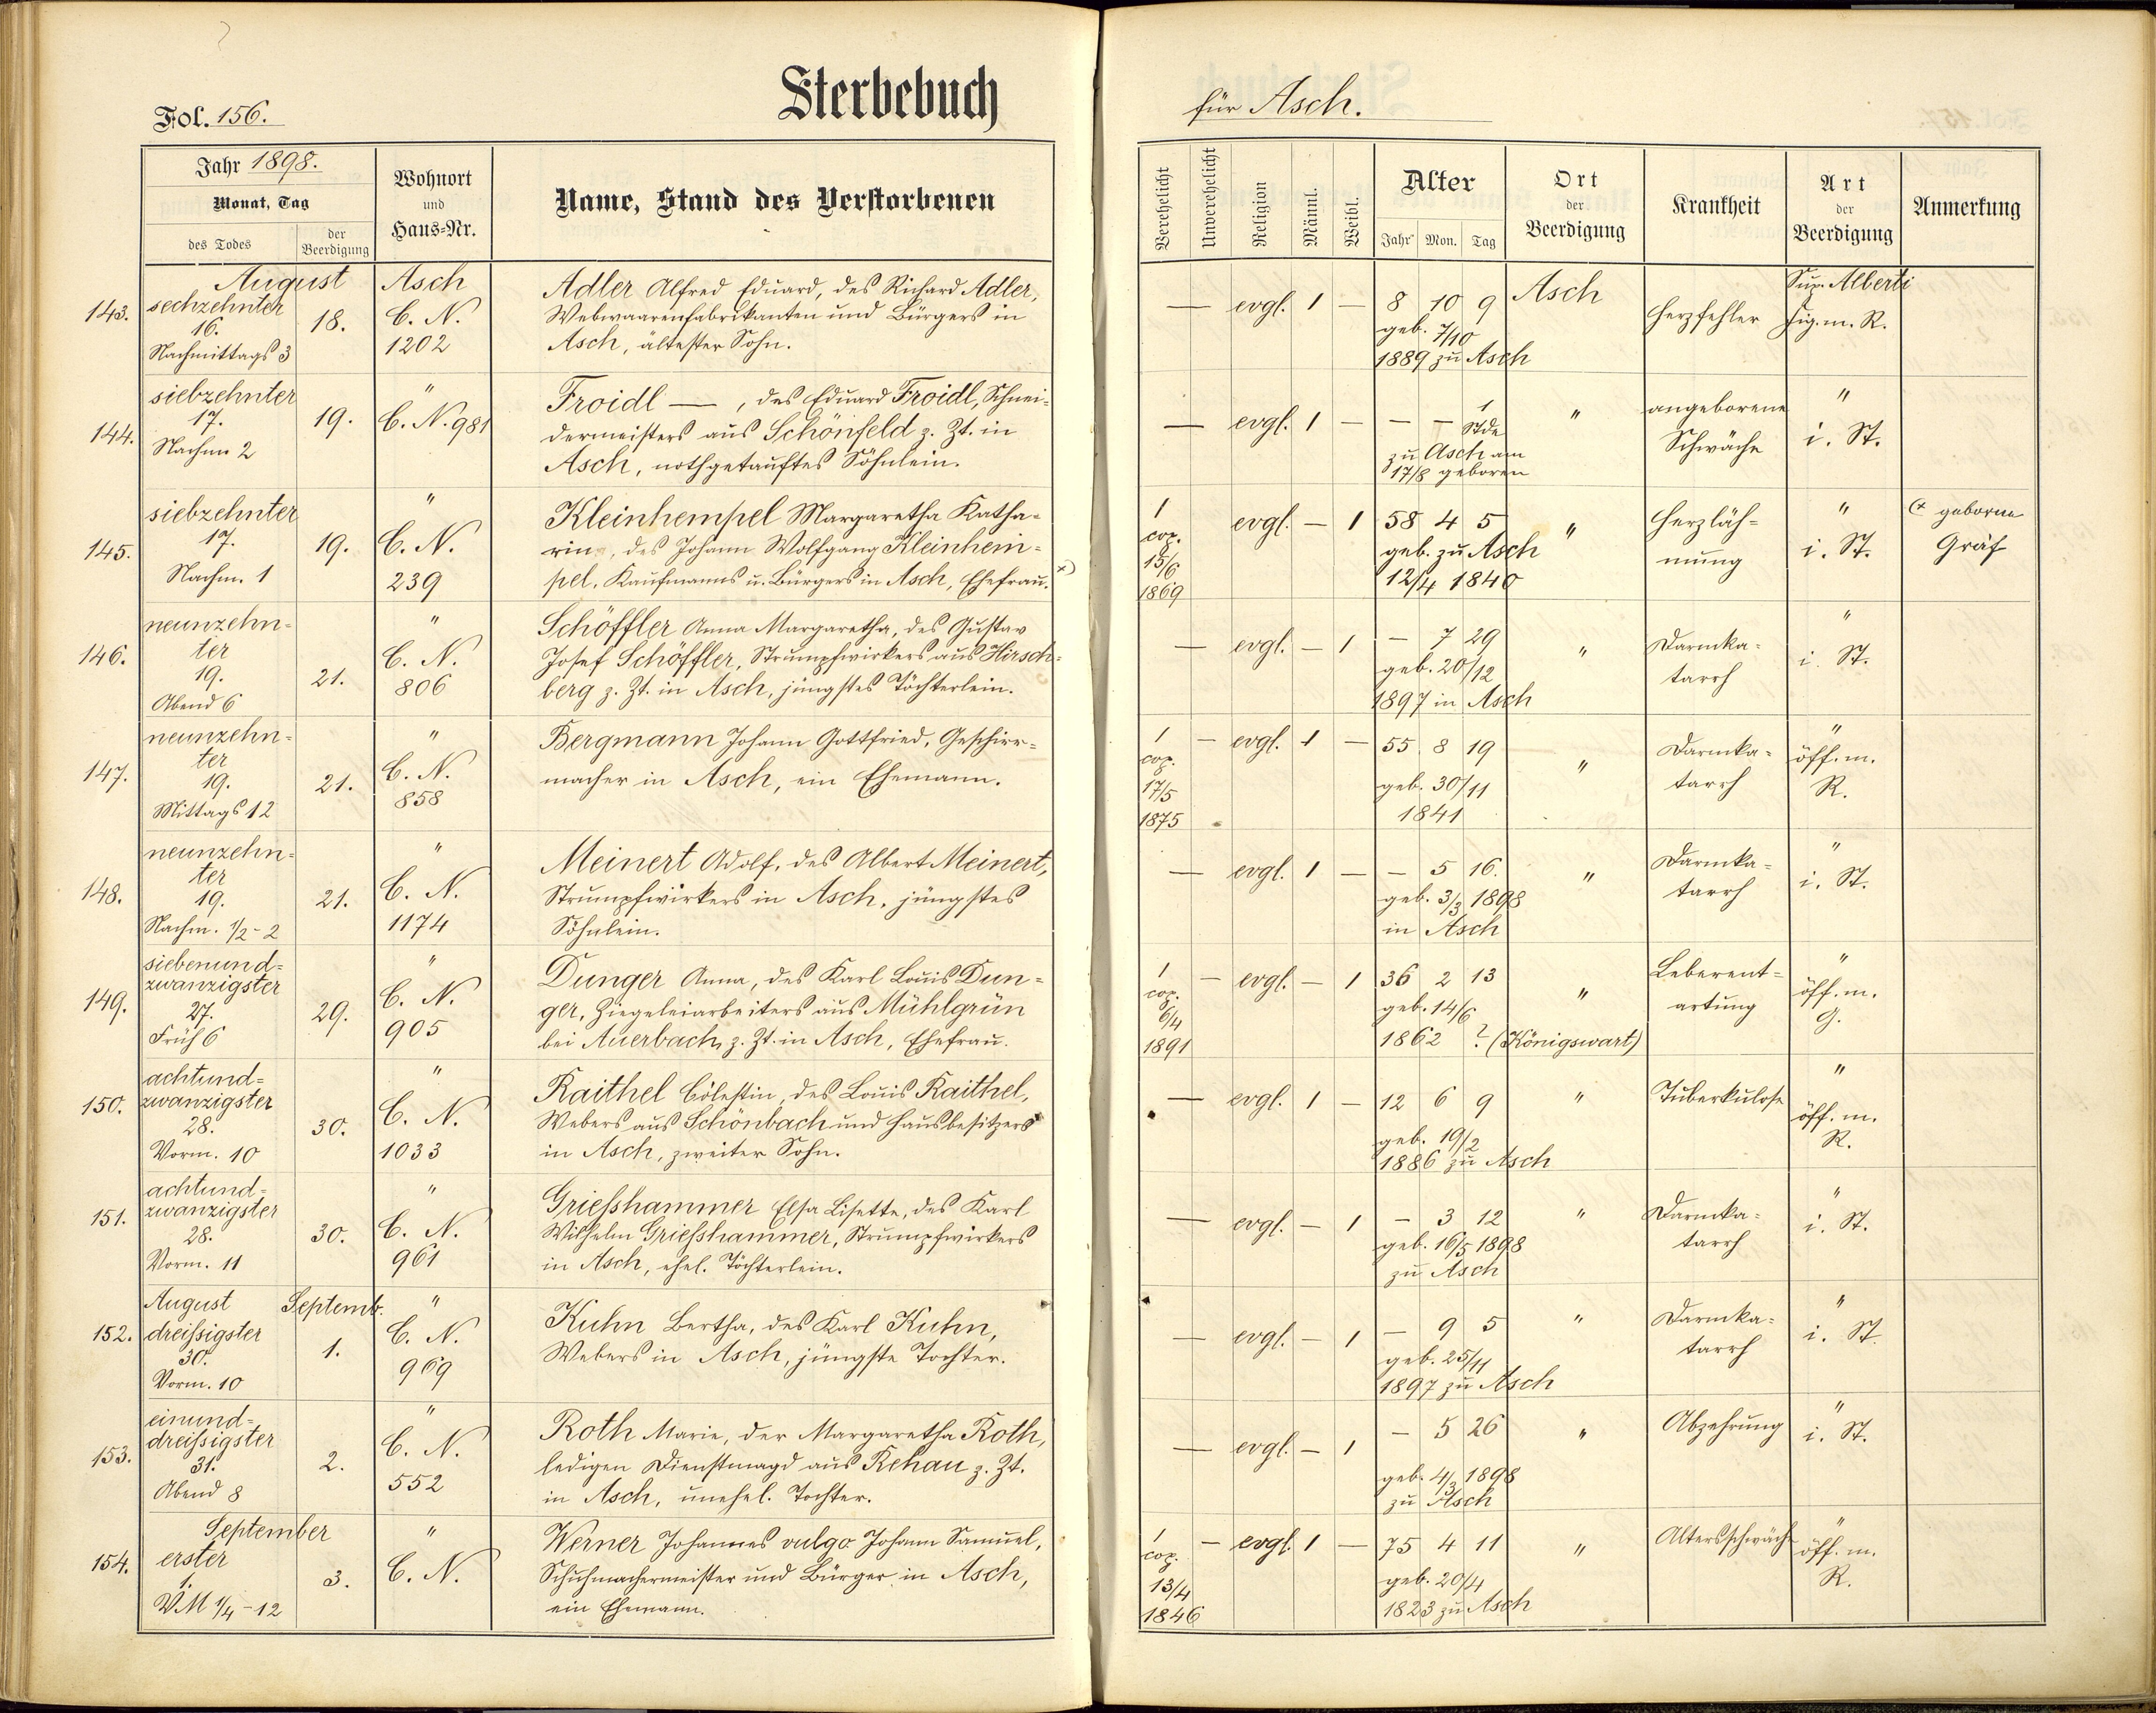 Fol. 156.
Sterbebuch
für Asch.
Jahr 1898.
Monat, Tag
des Todes
der Beerdigung
Wohnort und Haus-Nr.
Name, Stand des Verstorbenen
Verehelicht
Unverehelicht
Religion
Männl.
Weibl.
Alter
Jahr Mon. Tag
Ort der Beerdigung
Krankheit
Art der Beerdigung
Anmerkung
143.
August
sechzehnter
16.
Nachmittags 3
18.
Asch
C. N.
1202
Adler Alfred Eduard, des Richard Adler,
Webwaarenfabrikanten und Bürgers in
Asch, ältester Sohn.
— evgl. 1 — 8 10 9
geb. 7/10
1889 zu Asch
Asch
Herzfehler
Sup. Alberti
Fig. m. R.
144.
siebzehnter
17.
Nachm 2
19.
"
C. N. 981
Froidl —, des Eduard Froidl, Schnei-
dermeisters aus Schönfeld z. Zt. in
Asch, nothgetauftes Söhnlein.
— evgl. 1 — — — 1 Stde
zu Asch am
17/8 geboren
"
angeborene
Schwäche
"
i. St.
145.
siebzehnter
17.
Nachm. 1
19.
"
C. N.
239
Kleinhempel Margaretha Katha-
rina, des Johann Wolfgang Kleinhem-
pel, Kaufmanns u. Bürgers in Asch, Ehefrau. x)
1
cop.
15/6
1869
evgl. — 1 58 4 5
geb. zu Asch
12/4 1840
"
Herzläh-
mung
"
i. St.
(x geborene
Gräf
146.
neunzehn-
ter
19.
Abend 6
21.
"
C. N.
806
Schöffler Anna Margaretha, des Gustav
Josef Schöffler, Strumpfwirkers aus Hirsch-
berg z. Zt. in Asch, jüngstes Töchterlein.
— evgl. — 1 — 7 29
geb. 20/12
1897 in Asch
"
Darmka-
tarrh
"
i. St.
147.
neunzehn-
ter
19.
Mittags 12
21.
"
C. N.
858
Bergmann Johann Gottfried, Geschirr-
macher in Asch, ein Ehemann.
1
cop.
17/5
1875
— evgl. 1 — 55 8 19
geb. 30/11
1841
"
Darmka-
tarrh
"
öff. m.
R.
148.
neunzehn-
ter
19.
Nachm. 1/2-2
21.
"
C. N.
1174
Meinert Adolf, des Albert Meinert,
Strumpfwirkers in Asch, jüngstes
Söhnlein.
— evgl. 1 — — 5 16.
geb. 3/3 1898
in Asch
"
Darmka-
tarrh
"
i. St.
149.
siebenund-
zwanzigster
27.
Früh 6
29.
"
C. N.
905
Dunger Anna, des Karl Louis Dun-
ger, Ziegeleiarbeiters aus Mühlgrün
bei Auerbach, z. Zt. in Asch, Ehefrau.
1
cop.
6/4
1891
— evgl. — 1 36 2 13
geb. 14/6
1862 ? (Königswart)
"
Leberent-
artung
"
öff. m.
G.
150.
achtund-
zwanzigster
28.
Vorm. 10
30.
"
C. N.
1033
Raithel Cölestin, des Louis Raithel,
Webers aus Schönbach und Hausbesitzers
in Asch, zweiter Sohn.
— evgl. 1 — 12 6 9
geb. 19/2
1886 zu Asch
"
Tuberkulose
"
öff. m.
R.
151.
achtund-
zwanzigster
28.
Vorm. 11
30.
"
C. N.
961
Grießhammer Elsa Lisette, des Karl
Wilhelm Grießhammer, Strumpfwirkers
in Asch, ehel. Töchterlein.
— evgl. — 1 — 3 12
geb. 16/5 1898
zu Asch
"
Darmka-
tarrh
"
i. St.
152.
August Septemb.
dreißigster
30.
Vorm. 10
1.
"
C. N.
969
Kuhn Bertha, des Karl Kuhn,
Webers in Asch, jüngste Tochter.
— evgl. — 1 — 9 5
geb. 25/11
1897 zu Asch
"
Darmka-
tarrh
"
i. St
153.
einund-
dreißigster
31.
Abend 8
2.
"
C. N.
552
Roth Marie, der Margaretha Roth,
ledigen Dienstmagd aus Rehau z. Zt.
in Asch, unehel. Tochter.
— evgl. — 1 — 5 26
geb. 4/3 1898
zu Asch
"
Abzehrung
"
i. St.
154.
September
erster
1.
VM 1/4-12
3.
"
C. N.
Werner Johannes vulgo Johann Samuel,
Schuhmachermeister und Bürger in Asch,
ein Ehemann.
1
cop.
13/4
1846
— evgl. 1 — 75 4 11
geb. 20/4
1823 zu Asch
"
Altersschwäche
"
öff. m.
R.